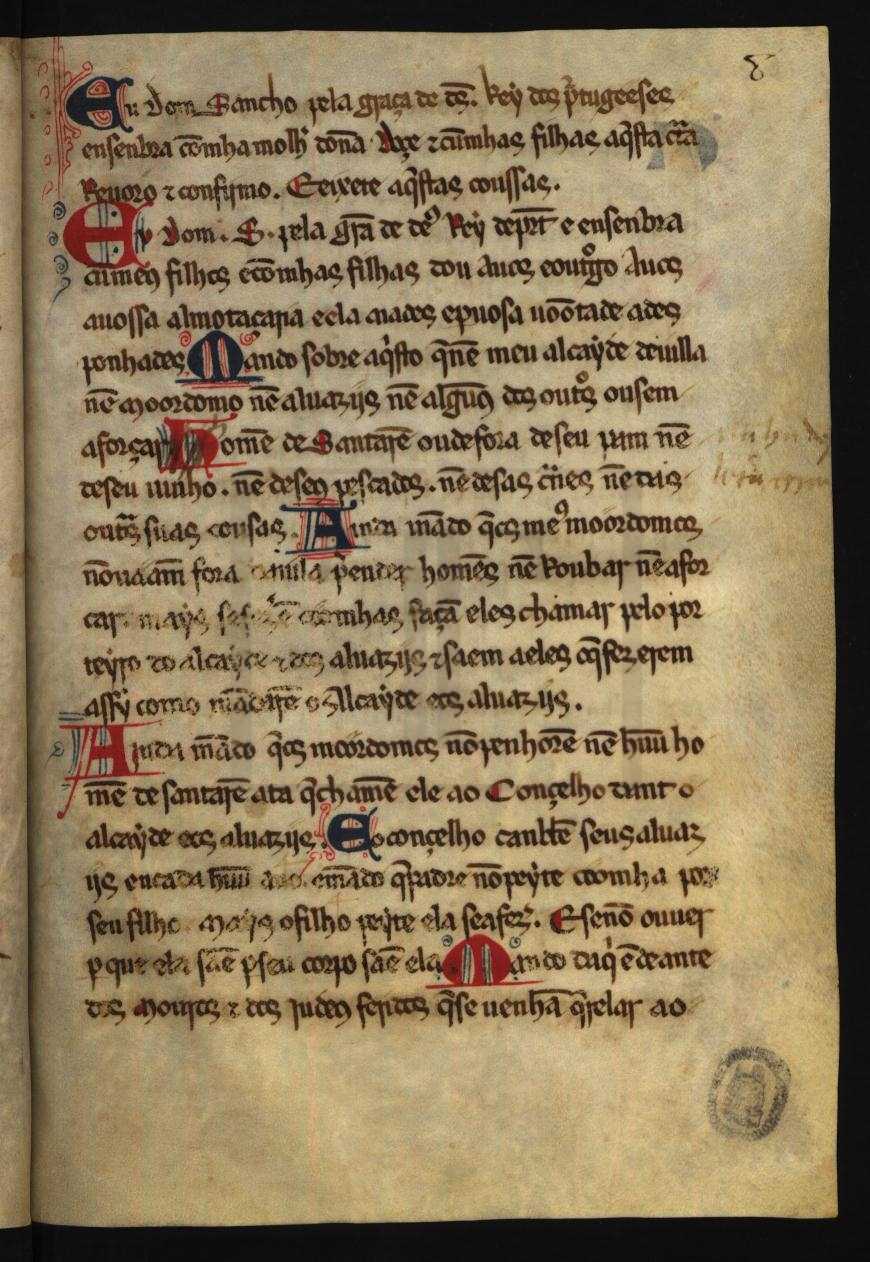 Eu Dom Sancho pela graça de ds̃. Rey dos p̃tugeeses
ensenbra cõ mha molh̃ dona Doçe ⁊ cũ mhas filhas aq̃sta ctã
Revoro ⁊ confirmo. E eixete aq̃stas coussas.
Eu Dom. S. pela grã de deꝰ Rey de port̃ e ensenbra
cũ meus filhos e cõ mhas filhas dou auos e outrgo Auos
a uossa almotaçaria e ela aiades e p uosa uoontade a des
ponhades Mando sobre aq̃sto q̃ nẽ meu alcayde deuilla
nẽ moordomo nẽ aluazijs nẽ algũus dos out̃s ousem
aforçar homẽ de Santarẽ ou de fora de seu pam nẽ
de seu uinho. nẽ de seus pescados. nẽ de sas c̃nes nẽ das
out̃s suas cousas. Ainda mãdo q̃ os meꝰ moordomos
nõ uaam fora da uila p̃ender homẽs nẽ Roubar nẽ afor
car. mays se fezerẽ coomhas façã eles chamar pelo por
teyro do alcayde ⁊ dos aluazijs ⁊ saem a eles o q̃ fezerem
assy como mãdarẽ o Alcayde e os aluazijs.
Ainda mãdo q̃ os moordomos nõ penhorẽ nẽ hũu ho
mẽ de santarẽ ata q̃ chamẽ ele ao Conçelho dant o
alcayde e os aluazijs. E o conçelho canbẽ seus aluaz
ijs en cada hũu ano. e mãdo q̃ padre nõ peyte coomha por
seu filho mays o filho peyte ela se a fez̃. E se nõ ouuer
p que ela saẽ p seu corpo saẽ ela Mando daq̃ ẽ deante
dos mouros ⁊ dos judeus feridos q̃ se uenhã q̃relar ao